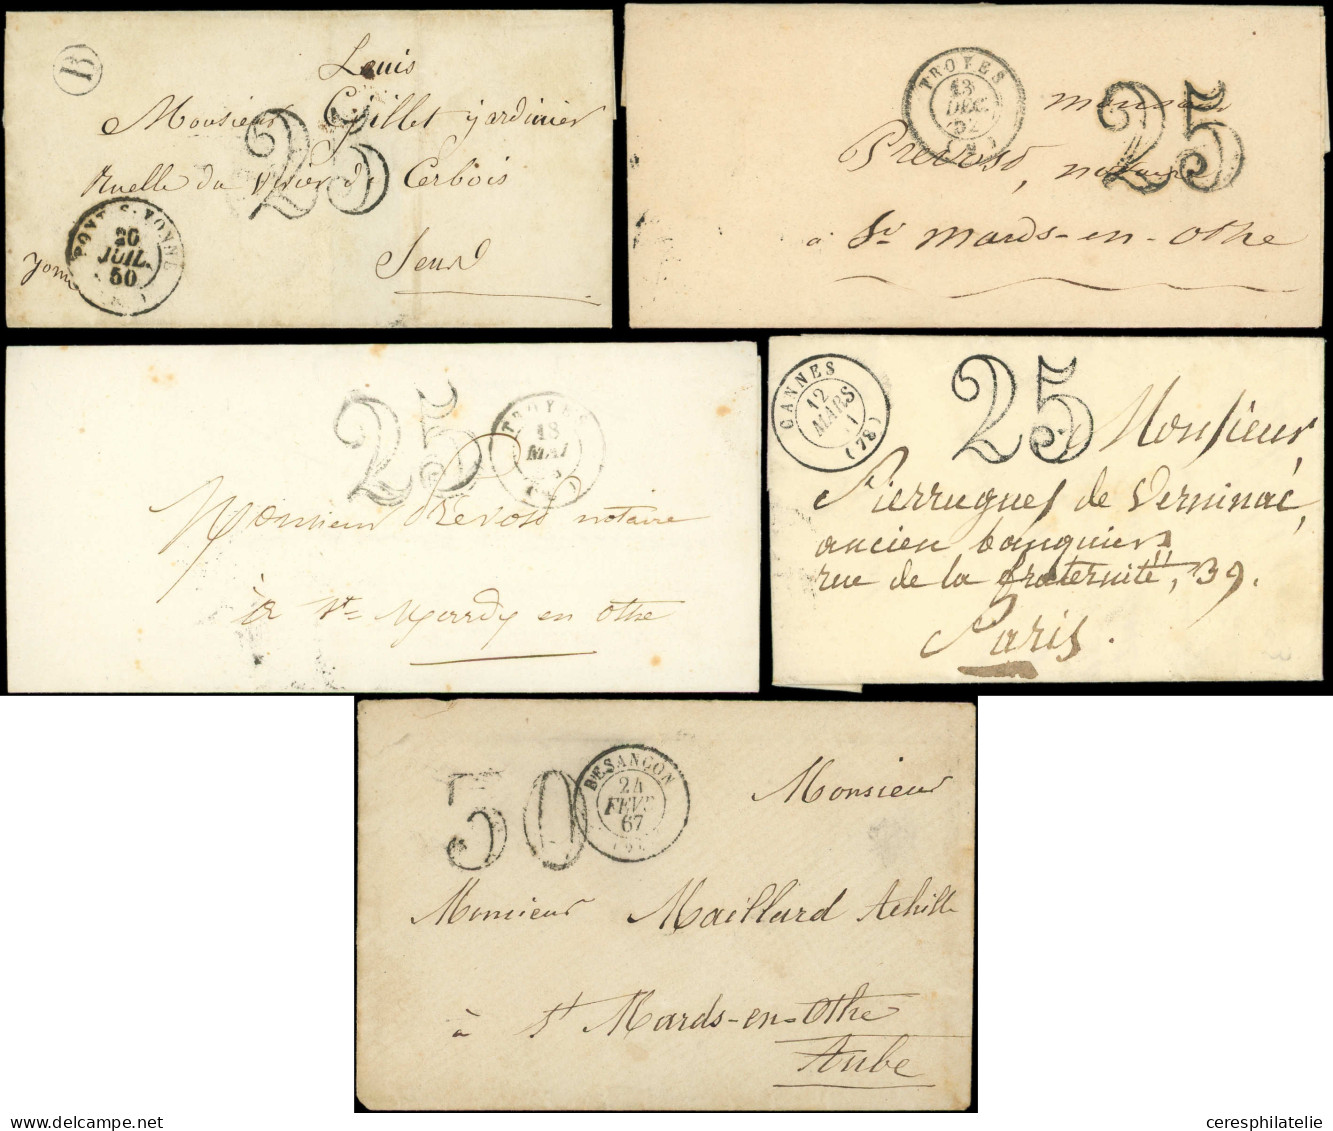 B
Louis
Monsieur Gillet jardinier
25
Ruelle du Vivier de Cerbois
PONT-S-YONNE
20
JUIL.
50
Sens
TROYES
13
DEC.
52
25
monsieur
Prevost, notaire
à St Mards-en-Othe
25
TROYES
18
MAI
Monsieur Prevost notaire
à St Mards en Othe
CANNES
12
MARS
(78)
25
Monsieur
Pierrugues de Verninac,
ancien banquier
rue de la fraternité, 39.
Paris.
30
BESANÇON
24
FEVR
67
Monsieur
Monsieur Maillard Achille
à St Mards-en-Othe
Aube
delcampe.net
ceresphilatelie